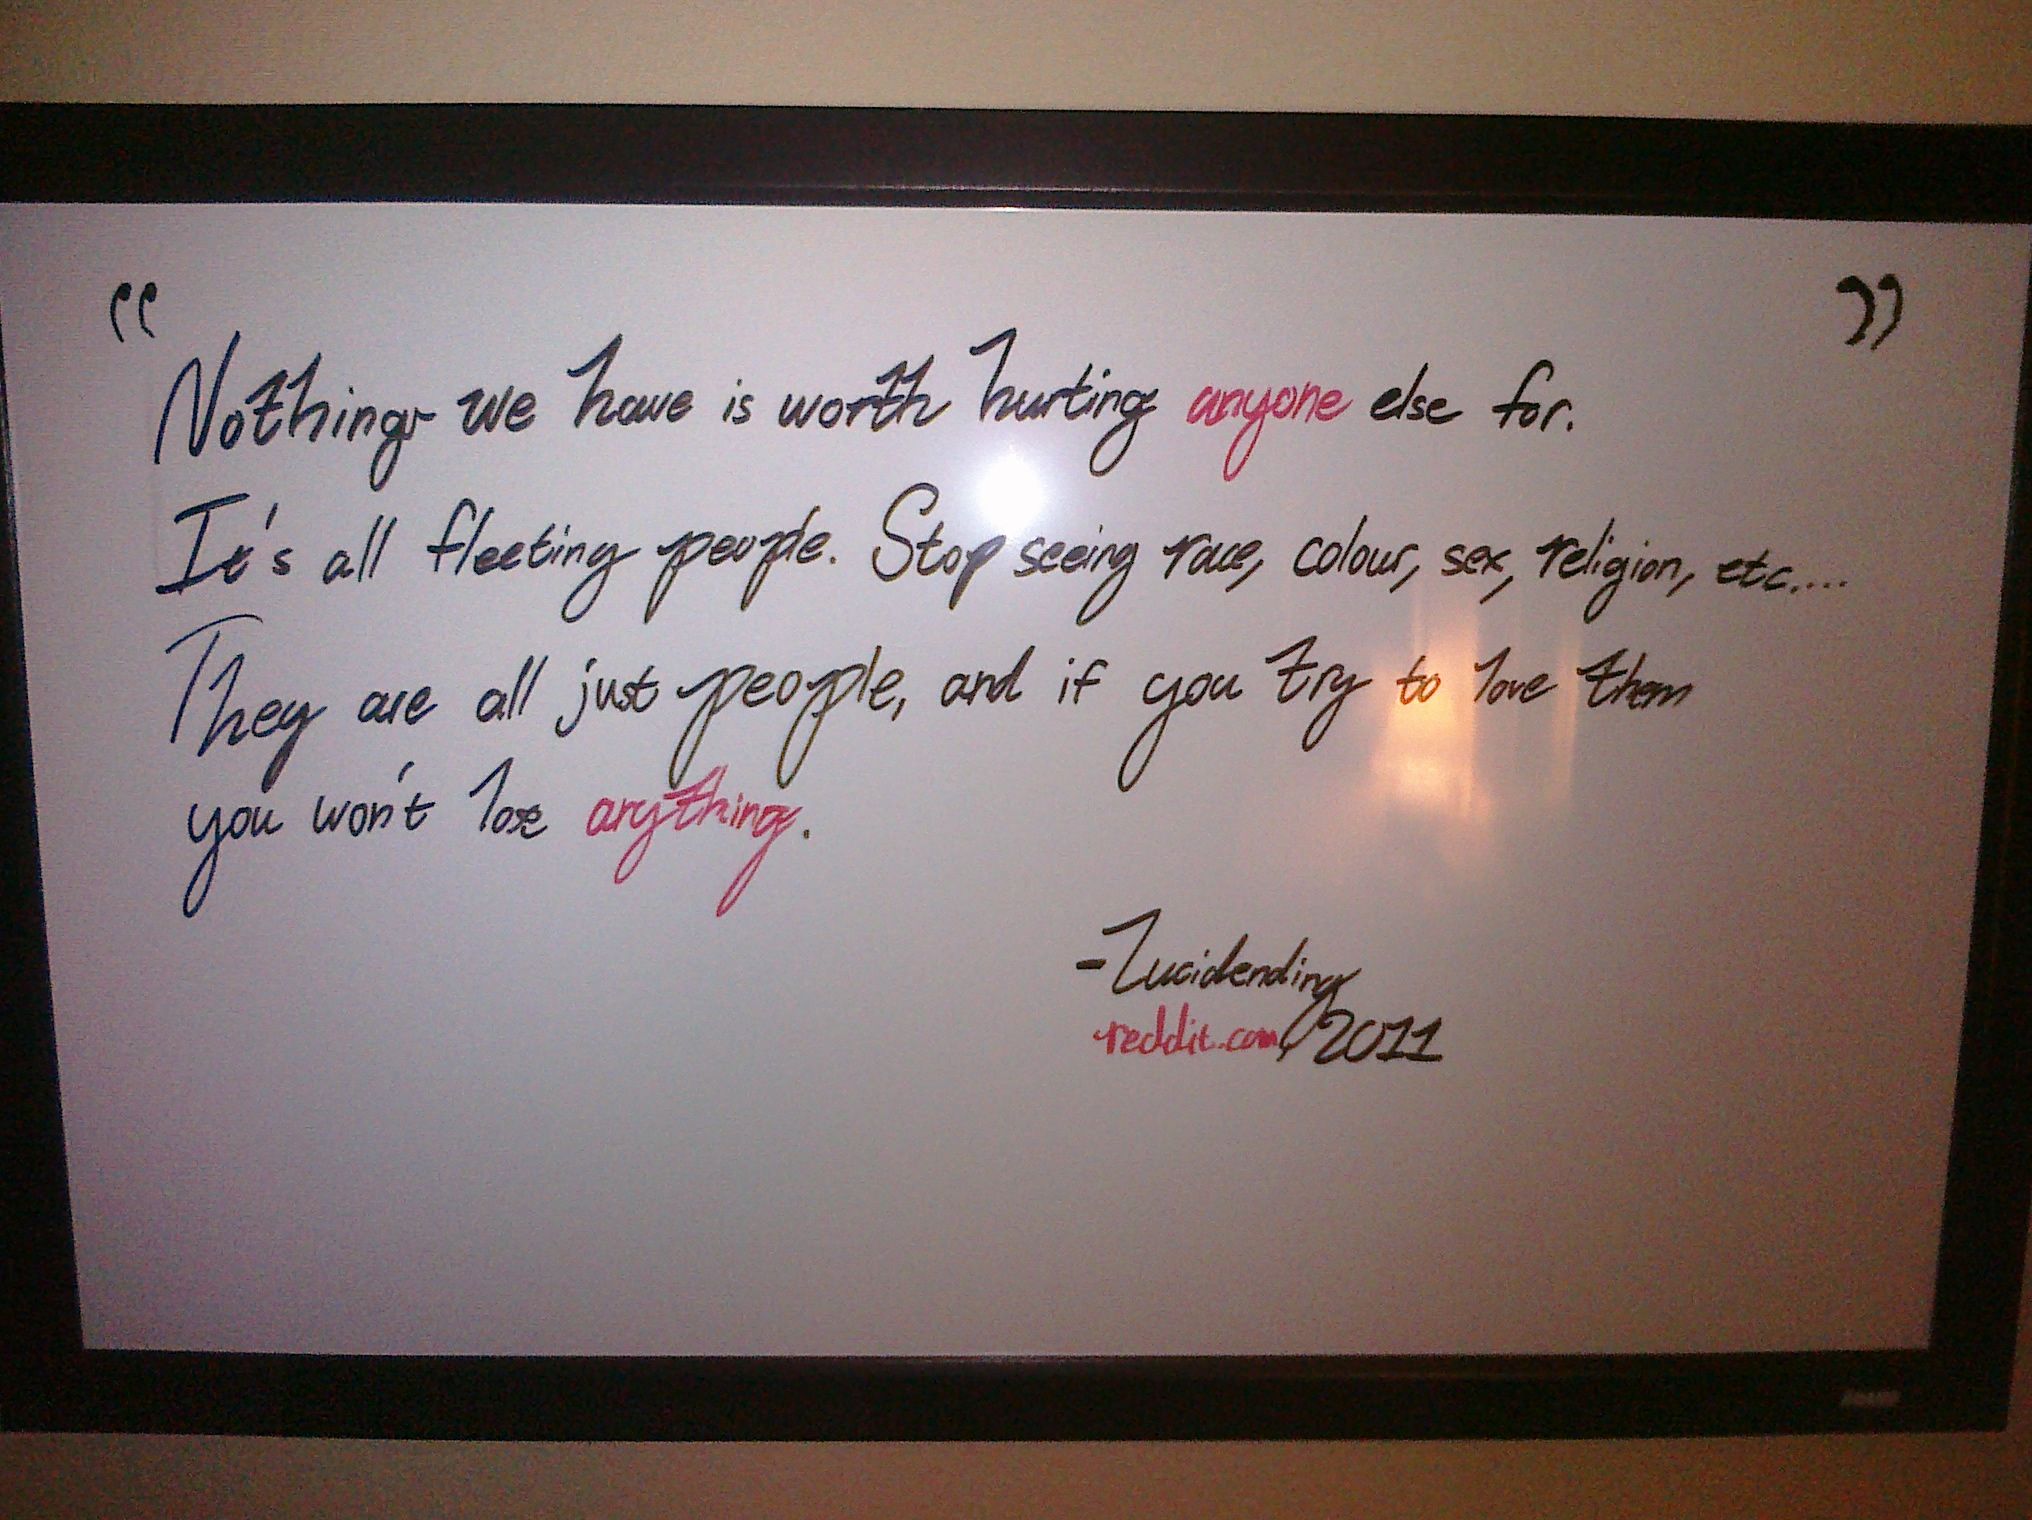 “ ”
Nothing we have is worth hurting anyone else for.
It's all fleeting people. Stop seeing race, colour, sex, religion, etc....
They are all just people, and if you try to love them
you won't lose anything.
-Lucidending
reddit.com, 2011